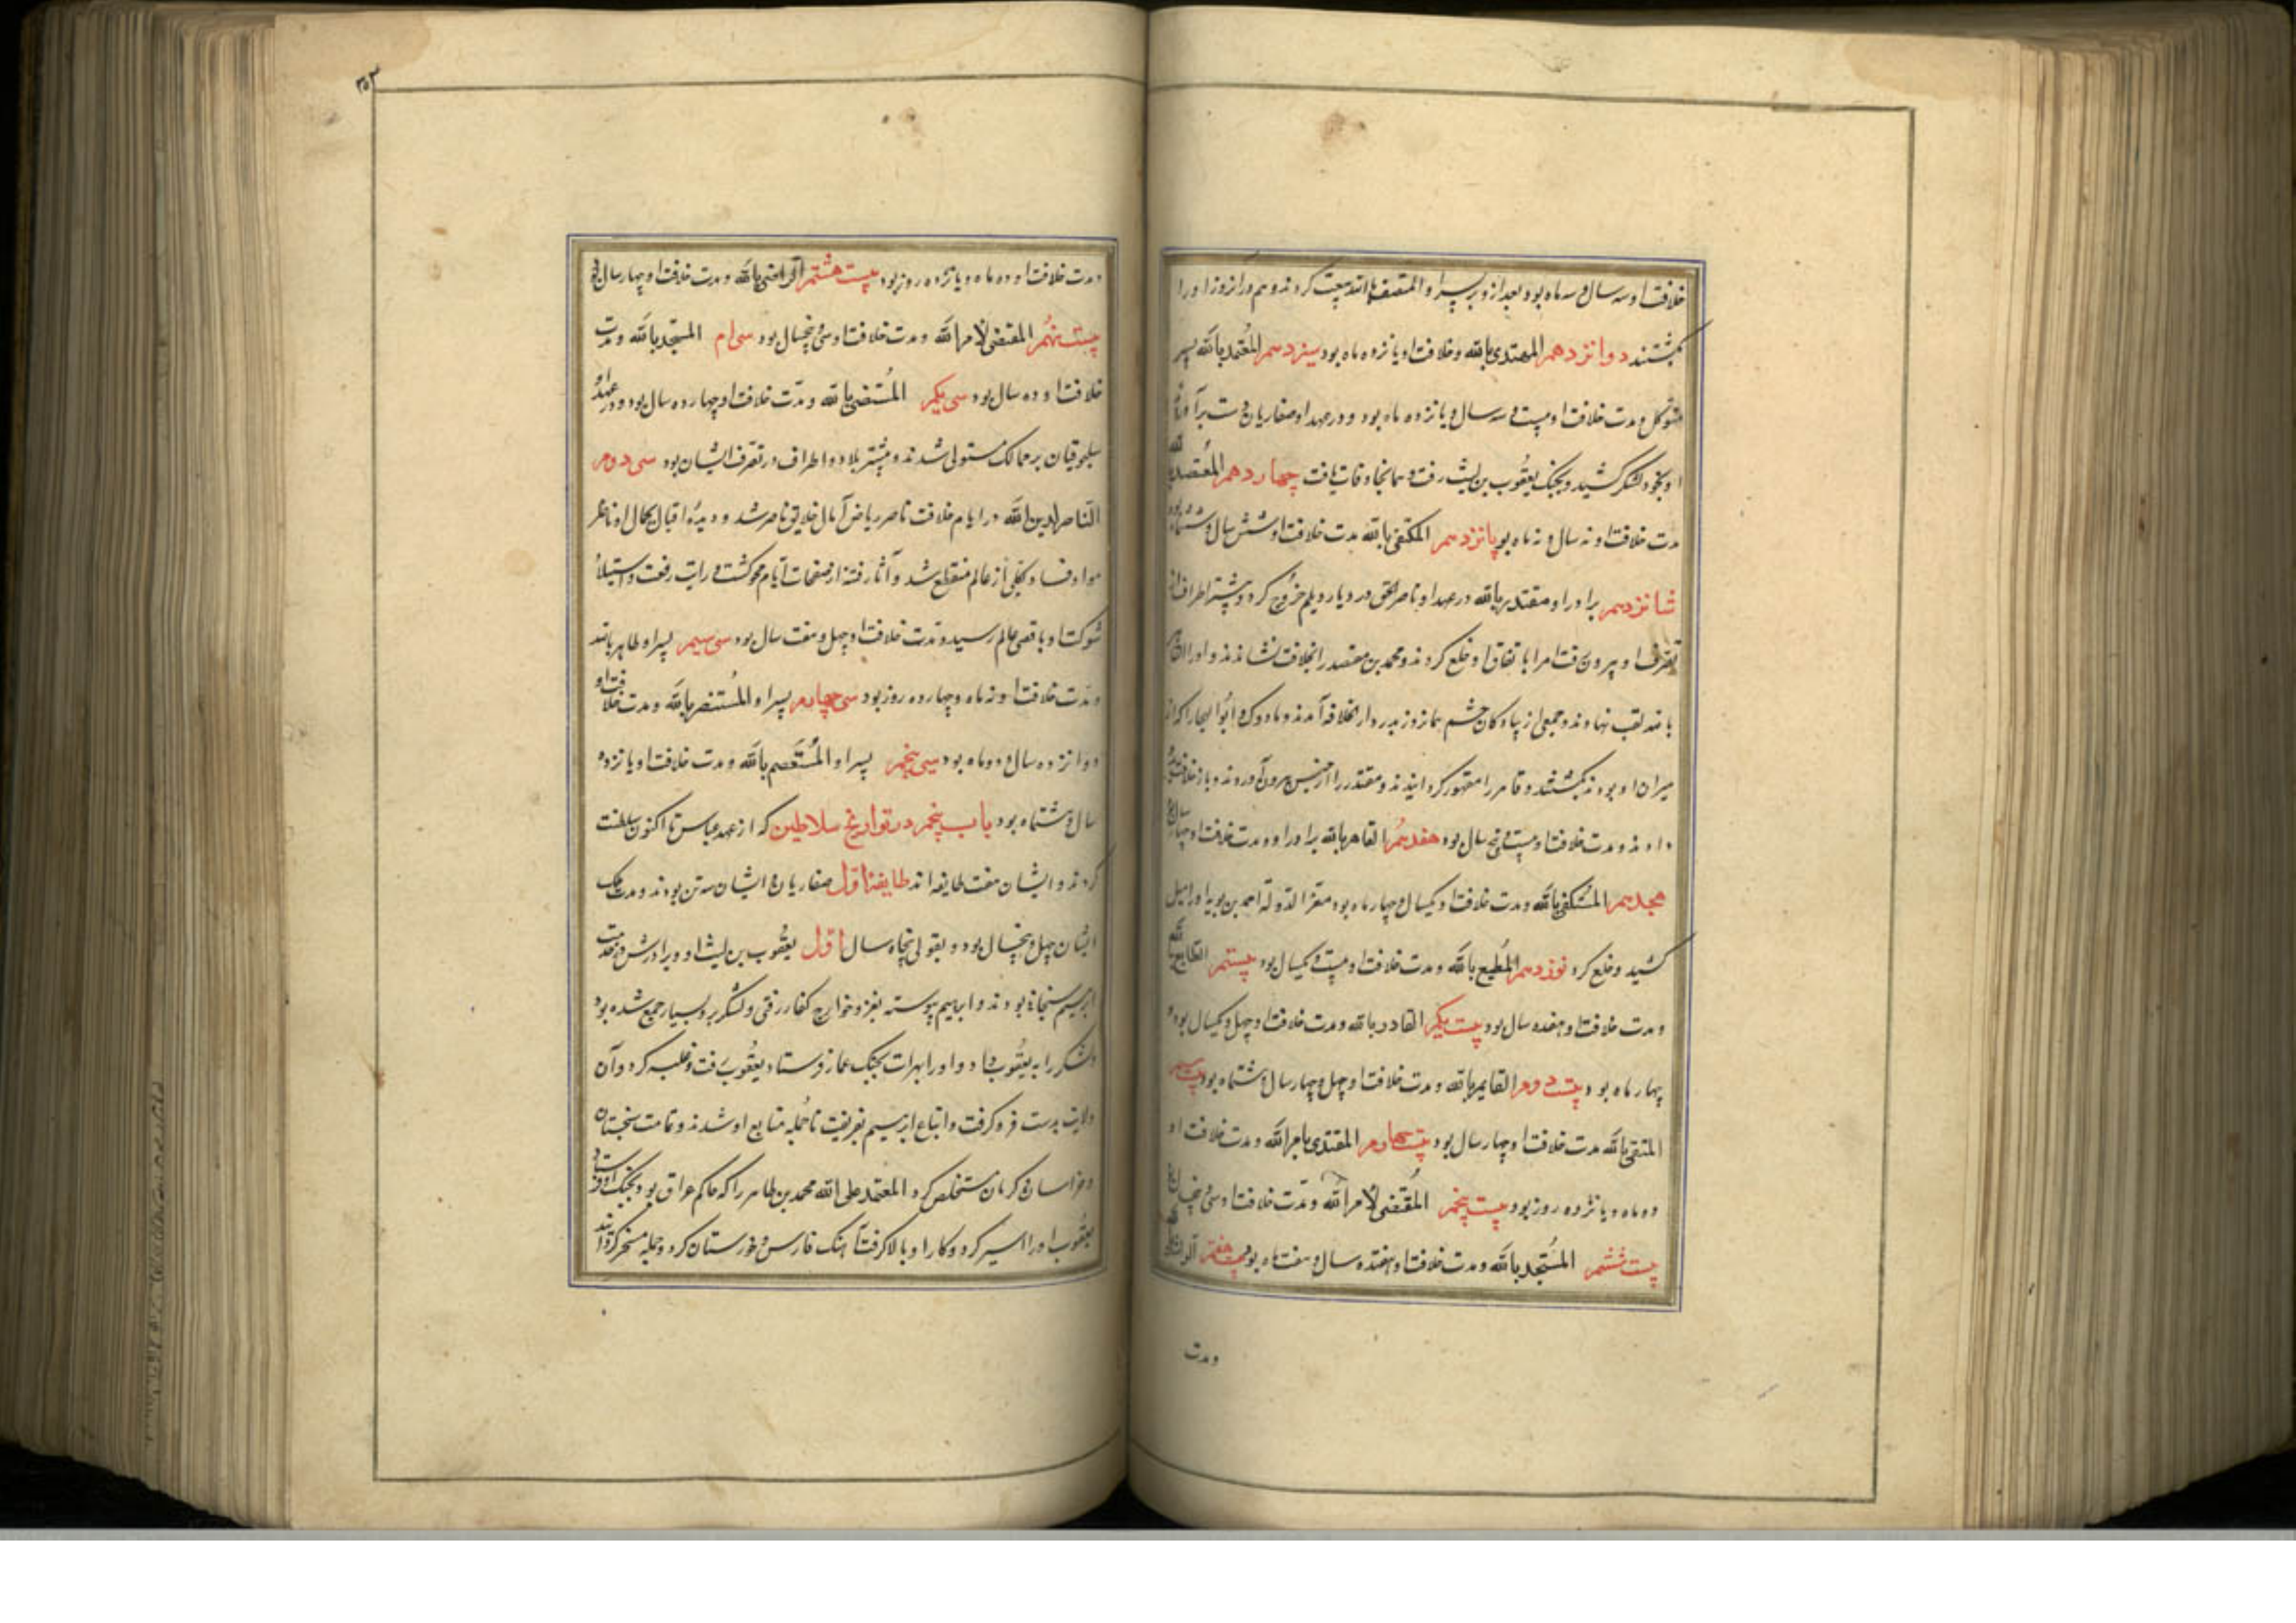 خلافت او سه سال و سه ماه بود بعد ازو بر پسر او المنتصف بالله بیعت کردند و هم در آن روز او را
بکشتند دوانزدهم المهتدی بالله و خلافت او یانزده ماه بود سیزدهم المعتمد بالله پسر
متوکل و مدت خلافت او بیست و سه سال و یانزده ماه بود و در عهد او صفاریان دست برآوردند
او بخود لشکر کشید و بجنگ یعقوب بن لیث رفت و همانجا وفات یافت چهاردهم المعتضد بالله
مدت خلافت او نه سال و نه ماه بود پانزدهم المکتفی بالله مدت خلافت او شش سال و ششماه بود
شانزدهم برادر او مقتدر بالله در عهد او ناصر الحق در دیار دیلم خروج کرد و بیشتر اطراف از
تصرف او بیرون رفت امرا باتفاق او خلع کردند و محمد بن معتضد را بخلافت نشاندند و او را القاهر
بالله لقب نهادند و جمعی از پیادگان حشم هماز روز بدر دار الخلافه آمدند و
میران او بودند بکشتند و قاهر را مقهور گردانیدند و مقتدر را از حبس بیرون آوردند و باز خلافت بدو
دادند و مدت خلافت او بیست و پنج سال بود هفدهم القاهر بالله برادر او و مدت خلافت او چهار سال
هجدهم المستکفی بالله و مدت خلافت او یکسال و چهار ماه بود معز الدوله احمد بن بویه او را میل
کشید و خلع کرد نوزدهم المطیع بالله و مدت خلافت او بیست و یکسال بود بیستم الطایع بالله
و مدت خلافت او هفده سال بود بیست یکم القادر بالله و مدت خلافت او چهل و یکسال بود و
چهار ماه بود بیست دوم القایم بالله و مدت خلافت او چهل و چهار سال و هشتماه بود بیست سیم
المتقی بالله مدت خلافت او چهار سال بود بیست چهارم المقتدی بامر الله و مدت خلافت او
دو ماه و یانزده روز بود بیست پنجم المقتفی لامر الله و مدت خلافت او سی و پنجسال
بیست ششم المستنجد بالله و مدت خلافت او هفتده سال و هفت ماه بود بیست هفتم
و مدت
و مدت خلافت او دو ماه و یانزده روز بود بیست هشتم الراضی بالله و مدت خلافت او چهار سال بود
بیست نهم المقتفی لامر الله و مدت خلافت او سی و پنجسال بود سی ام المستنجد بالله و مدت
خلافت او ده سال بود سی یکم المستضی بالله و مدت خلافت او چهارده سال بود و در عهد او
سلجوقیان بر ممالک مستولی شدند و بیشتر بلاد و اطراف در تصرف ایشان بود سی دوم
الناصر لدین الله در ایام خلافت ناصر ریاض آمال خلایق ناضر شد و دیده اقبال بجمال او ناظر
مواد فساد بکلی از عالم منقطع شد و آثار فتنه از صفحات ایام محو گشت و رایت رفعت و استیلاء
شوکت او باقصی عالم رسید و مدت خلافت او چهل و هفت سال بود سی سیم پسر او ظاهر بالله
و مدت خلافت او نه ماه و چهارده روز بود سی چهارم پسر او المستنصر بالله و مدت خلافت او
دوانزده سال و دو ماه بود سی پنجم پسر او المستعصم بالله و مدت خلافت او یانزده
سال و هشتماه بود باب پنجم در تواریخ سلاطین که از عهد عباس تا اکنون سلطنت
کردند و ایشان هفت طایفه اند طایفه اول صفاریان و ایشان سه تن بودند و مدت ملک
ایشان چهل و پنجسال بود و بقولی پنجاه سال اول یعقوب بن لیث او و برادرش در خدمت
ابرهیم سنجانی بودند و ابراهیم پیوسته بغزو خوارج کفار رفتی و لشکر برو بسیار جمع شده بود
لشکر را به یعقوب داد و او را بهرات بجنگ عمار فرستاد یعقوب رفت و غلبه کرد و آن
ولایت بدست فرو گرفت و اتباع ابرهیم بفریفت تا جمله متابع او شدند و تمامت سجستان
و خراسان و کرمان مستخلص کرد المعتمد علی الله محمد بن طاهر را که حاکم عراق بود بجنگ او فرستاد
یعقوب او را اسیر کرد و کار او بالا گرفت آهنگ فارس و خوزستان کرد و جمله مسخر گردانید